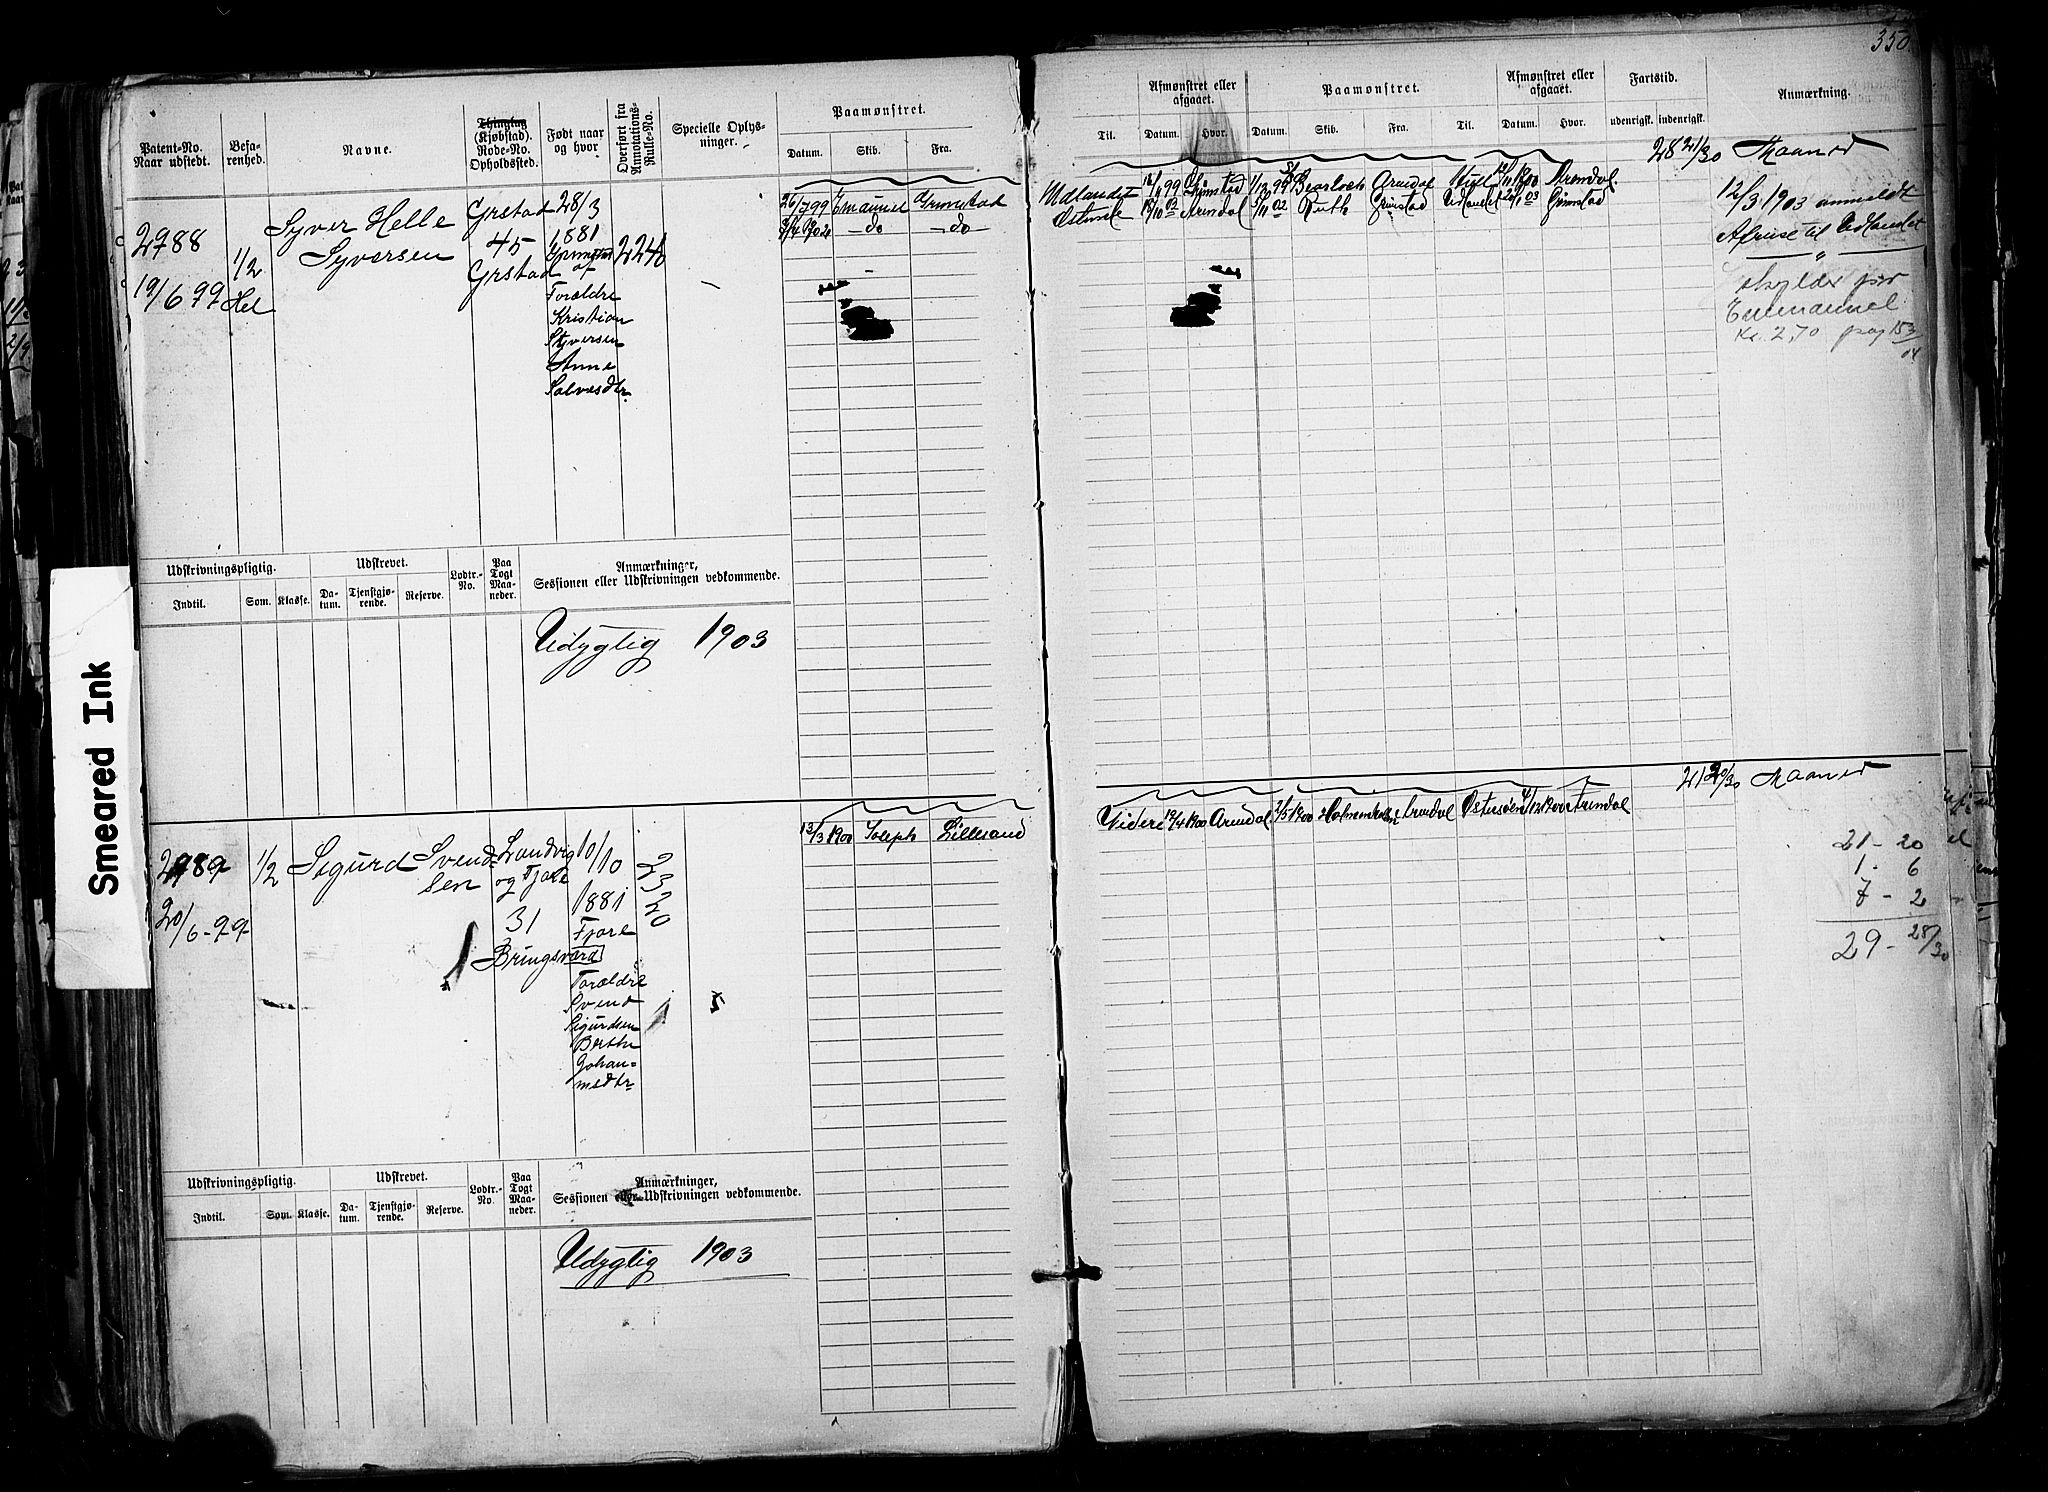 350.
Patent-No.
Naar udstedt.
Befa-
renhed.
Navne.
Thinglag
(Kjøbstad).
Rode-No.
Opholdssted.
Født naar
og hvor
Overført fra
Annotations-
Rulle-No.
Specielle Oplys-
ninger.
Paamønstret.
Datum.
Skib.
Fra.
Til.
Afmønstret eller
afgaaet.
Datum.
Hvor.
Paamønstret.
Datum.
Skib.
Fra.
Til.
Afmønstret eller
afgaaet.
Datum.
Hvor.
Fartstid.
udenrigsk.
indenrigsk.
Anmærkning.
2988
19/6 99
1/2
Hel
Syver Helle
Syversen
Grstad
45
Grstad
28/3
1881
Forældre
Kristian
Syversen
Anne
Salvesdtr.
2240
26/7 99 Emanuel Grimstad
do do
Udlandet
99 Grimstad 1/12 99 Arendal 1900 Arendal
02 Arendal 02 Ruth Grimstad Udlandet 03 Grimstad
28 21/30 Maaned
12/3 1903 anmeldt
Afreise til Udlandet
skylder for
Emmanuel
Kr. 2,70
Udskrivningspligtig.
Indtil.
Som.
Klasse.
Udskrevet.
Da-
tum.
Tjenstgjø-
rende.
Reserve.
Lodtr.-
No.
Paa
Togt
Maa-
neder.
Anmærkninger,
Sessionen eller Udskrivningen vedkommende.
Udygtig 1903
Smeared Ink
2989
20/6-99
1/2
Sigurd Svend-
sen
Landvig
og Fjære
31
Bringsværd
10/10
1881
Fjære
Forældre
Svend
Sigurdsen
Berthe
Johan-
nesdtr
2320
13/3 1900 Joseph Lillesand
Videre 19/4 1900 Arendal 2/5 1900 Holmenkollen Arendal Østersøen 4/12 1900 Arendal
21 20/30 Maaned
21 - 20
1 - 6
7 - 2
29 - 28/30
Udskrivningspligtig.
Indtil.
Som.
Klasse.
Udskrevet.
Da-
tum.
Tjenstgjø-
rende.
Reserve.
Lodtr.-
No.
Paa
Togt
Maa-
neder.
Anmærkninger,
Sessionen eller Udskrivningen vedkommende.
Udygtig 1903